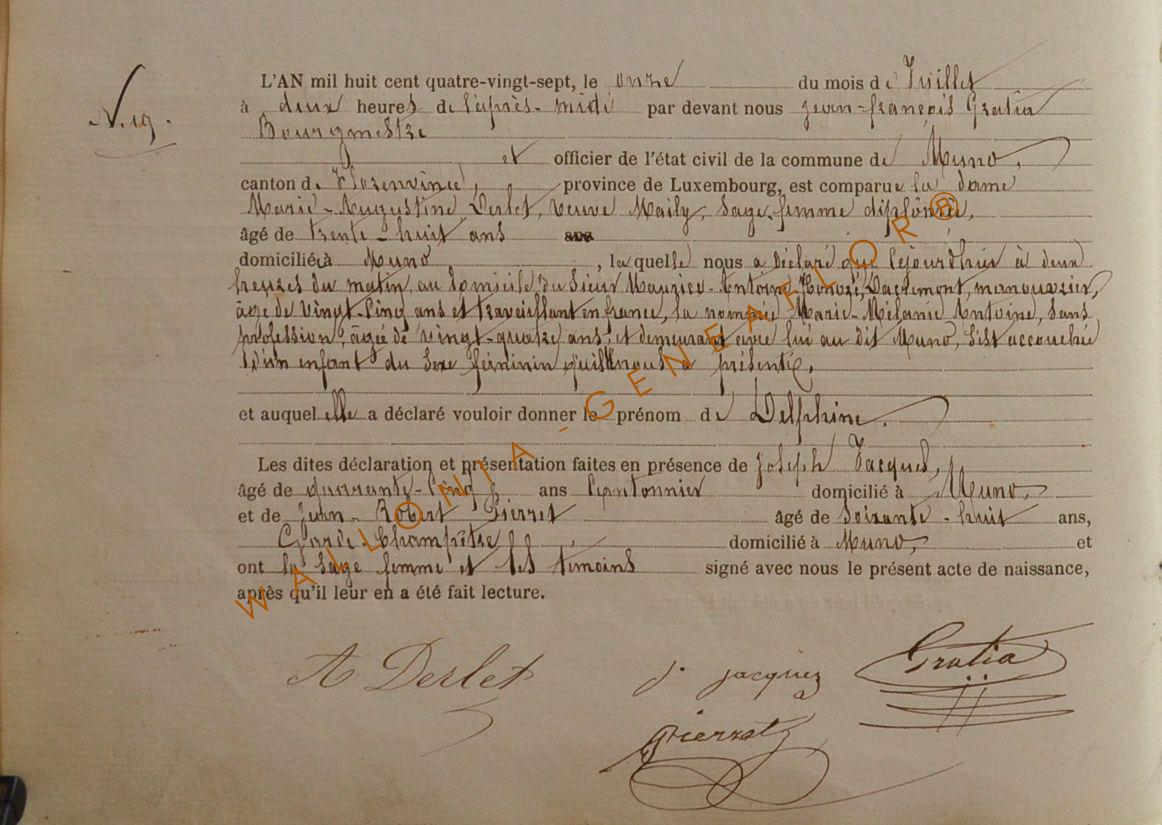 N. 19.
L'AN mil huit cent quatre-vingt-sept, le onze du mois de Juillet
à deux heures de l'après-midi par devant nous Jean-françois Gratia
Bourgmestre
et officier de l'état civil de la commune de Muno,
canton de Florenville, province de Luxembourg, est comparue la dame
Marie-Augustine Derlet, veuve Maily, Sage femme diplômée,
âgé de trente-huit ans ans
domiciliée à Muno, laquelle nous a déclaré que cejourd'hui à deux
heures du matin, au domicile du Sieur Antoine-Honoré, manouvrier,
âgé de vingt-cinq ans et travaillant en france, la nommée Marie-Mélanie Antoine, Sans
profession, âgée de vingt-quatre ans, et demeurant avec lui au dit Muno, S'est accouchée
d'un enfant du Sexe féminin nous a présenté,
et auquel elle a déclaré vouloir donner le prénom de Delphine.
Les dites déclaration et présentation faites en présence de Joseph Jacques,
âgé de quarante-cinq ans Cantonnier domicilié à Muno,
et de Jean-Robert Pierret âgé de Soixante-huit ans,
Garde Champêtre domicilié à Muno, et
ont la Sage femme et les temoins signé avec nous le présent acte de naissance,
après qu'il leur en a été fait lecture.
A Derlet
J. Jacques
Gratia
Pierret
WALLONIA-GENEAFLOR®